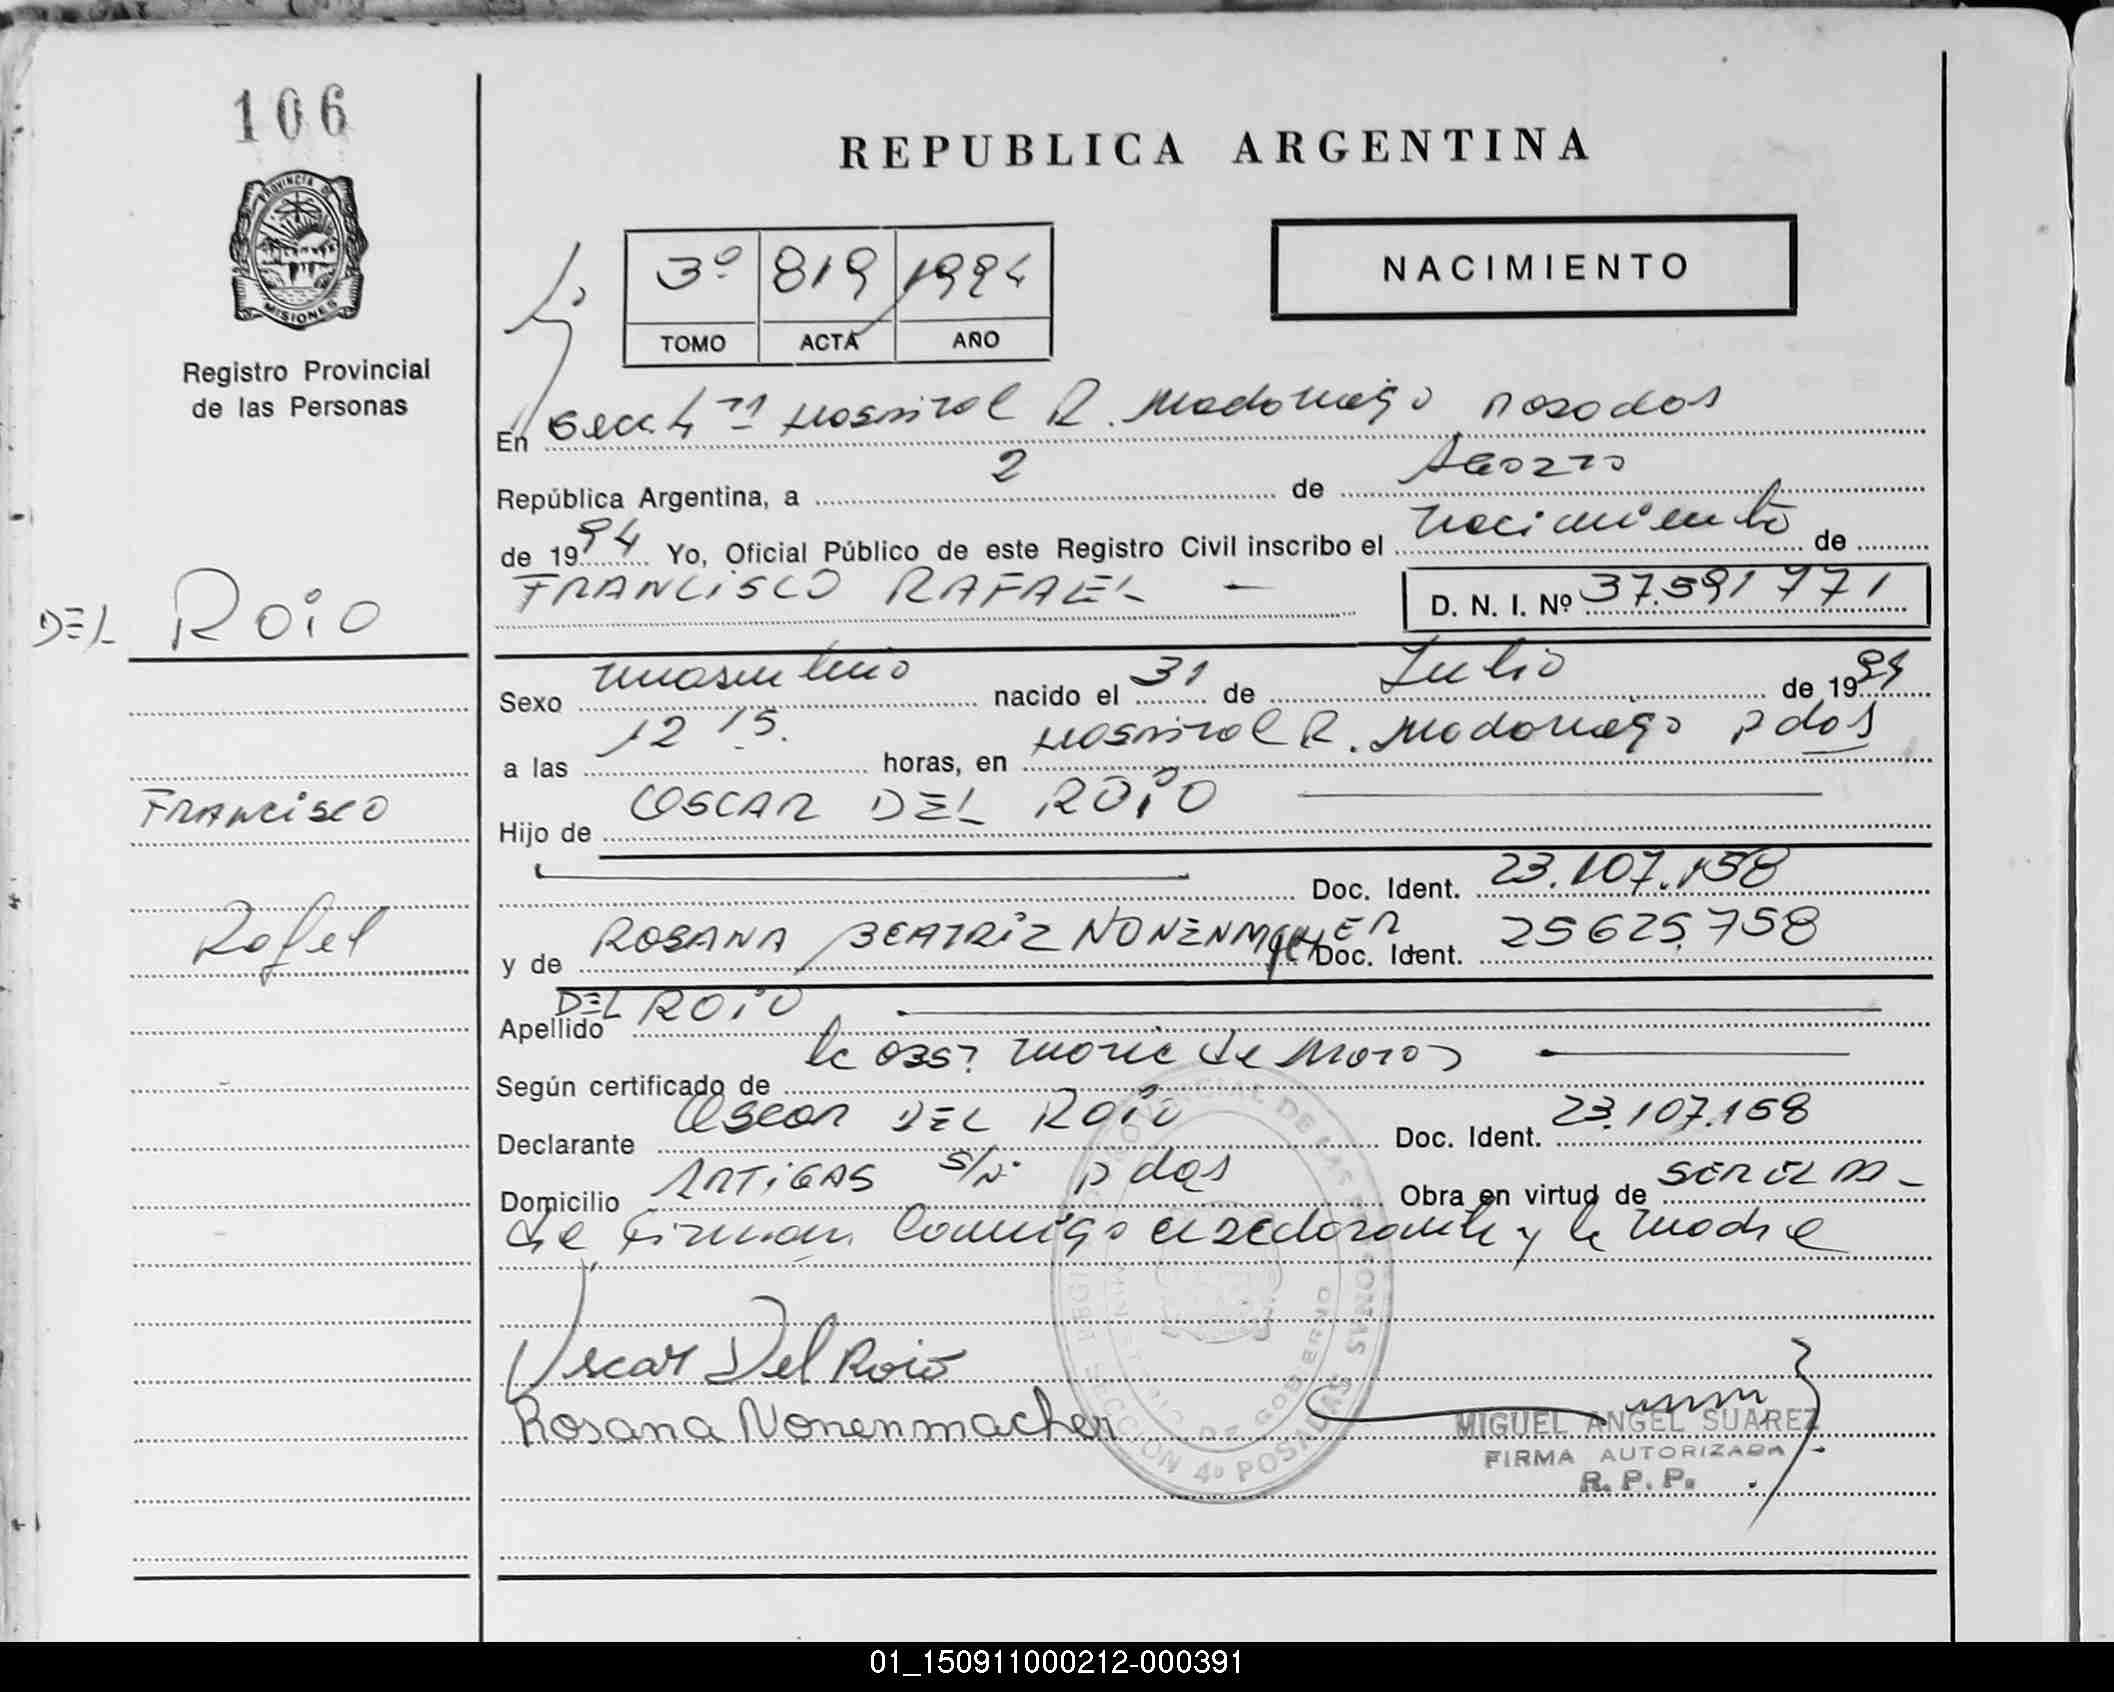 106
PROVINCIA DE
MISIONES
Registro Provincial
de las Personas
DEL ROiO
FRANCiSCO
Rafel
REPUBLICA ARGENTINA
3º 819 1994
TOMO ACTA AÑO
NACIMIENTO
En Secc 4ª Hospital R. Madariaga Posadas
República Argentina, a 2 de Agosto
de 1994 Yo, Oficial Público de este Registro Civil inscribo el nacimiento de
FRANCiSCO RAFAEL - D. N. I. Nº 37.591771
Sexo masculino nacido el 31 de Julio de 1994
a las 12 15. horas, en Hospital R. Madariaga Pdas
Hijo de OSCAR DEL ROiO
Doc. Ident. 23.107.158
y de ROSANA BEATRiZ NONENMACHER Doc. Ident. 25625.758
Apellido DEL ROiO
Según certificado de la obst Maria de
Declarante Oscar DEL ROiO Doc. Ident. 23.107.158
Domicilio ARTiGAS S/Nº Pdas Obra en virtud de SER EL PA-
dre Firman conmigo el declarante y la madre
Oscar Del Roio
Rosana Nonenmacher
REGISTRO PROVINCIAL DE LAS PERSONAS
MINISTERIO DE GOBIERNO
SECCION 4º POSADAS
MIGUEL ANGEL SUAREZ
FIRMA AUTORIZADA
R. P. P.
01_150911000212-000391